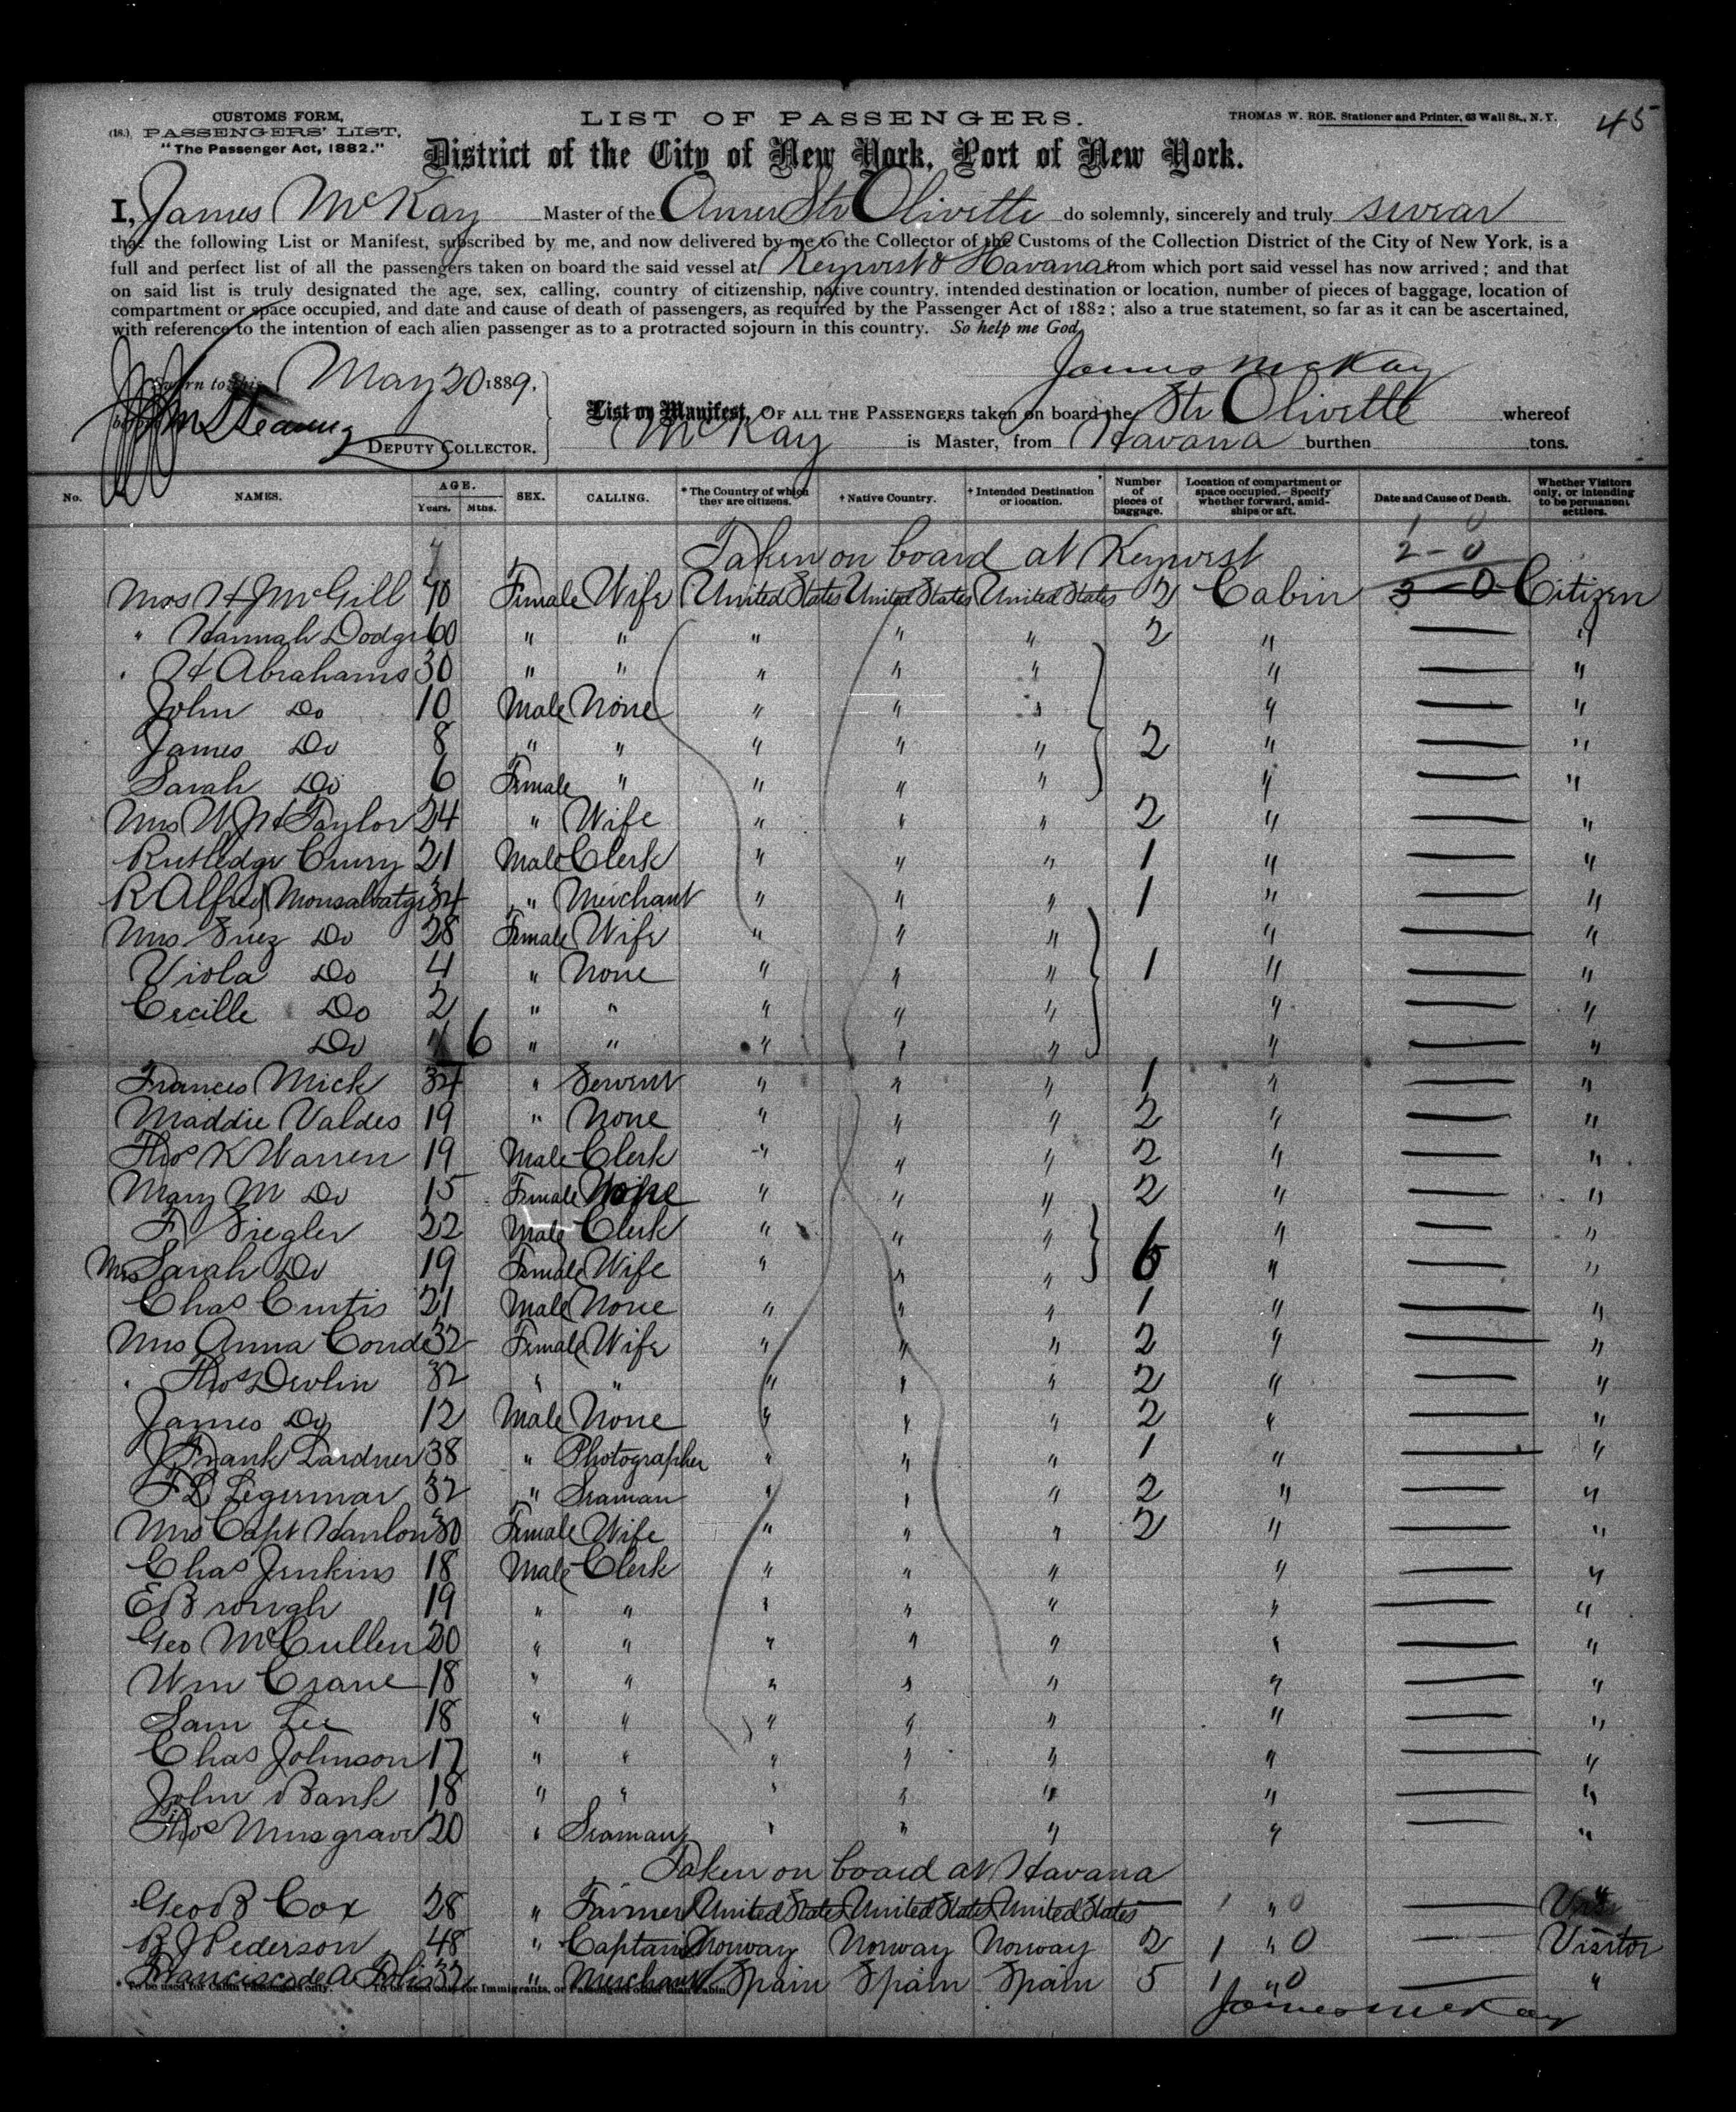 45
CUSTOMS FORM,
(18.) PASSENGERS' LIST,
"The Passenger Act, 1882."
LIST OF PASSENGERS.
THOMAS W. ROE, Stationer and Printer, 63 Wall St., N. Y.
District of the City of New York, Port of New York.
I, James McKay Master of the Amer Str Olivette do solemnly, sincerely and truly swear
that the following List or Manifest, subscribed by me, and now delivered by me to the Collector of the Customs of the Collection District of the City of New York, is a
full and perfect list of all the passengers taken on board the said vessel at Keywest & Havana from which port said vessel has now arrived; and that
on said list is truly designated the age, sex, calling, country of citizenship, native country, intended destination or location, number of pieces of baggage, location of
compartment or space occupied, and date and cause of death of passengers, as required by the Passenger Act of 1882; also a true statement, so far as it can be ascertained,
with reference to the intention of each alien passenger as to a protracted sojourn in this country. So help me God.
James McKay
Sworn to this May 20 1889.
DEPUTY COLLECTOR.
List or Manifest, OF ALL THE PASSENGERS taken on board the Str Olivette whereof
McKay is Master, from Havana burthen tons.
No. NAMES. AGE. Years. Mths. SEX. CALLING. * The Country of which they are citizens. † Native Country. † Intended Destination or location. Number of pieces of baggage. Location of compartment or space occupied.—Specify whether forward, amidships or aft. Date and Cause of Death. Whether Visitors only, or intending to be permanent settlers.
1 0
Taken on board at Keywest 2 - 0
Mrs H J McGill 40 Female Wife United States United States United States 2 Cabin 3 - 0 Citizen
" Hannah Dodge 60 " " " " " 2 " — "
" H Abrahams 30 " " " " " " — "
John Do 10 Male None " " " " — "
James Do 8 " " " " " 2 " — "
Sarah Do 6 Female " " " " " — "
Mrs W H Taylor 24 " Wife " " " 2 " — "
Rutledge Curry 21 Male Clerk " " " 1 " — "
R Alfred Monsalvatge 34 " Merchant " " " 1 " — "
Mrs Do 28 Female Wife " " " " — "
Viola Do 4 " None " " " 1 " — "
Cecille Do 2 " " " " " " — "
Do 6 " " " " " " — "
Frances Mick 34 " Servent " " " 1 " — "
Maddie Valdes 19 " None " " " 2 " — "
Thos K Warren 19 Male Clerk " " " 2 " — "
Mary M Do 15 Female " " " 2 " — "
F Siegler 22 Male Clerk " " " " — "
Mrs Sarah Do 19 Female Wife " " " 6 " — "
Chas Curtis 21 Male None " " " 1 " — "
Mrs Anna Conde 32 Female Wife " " " 2 " — "
" Thos Devlin 32 " " " " " 2 " — "
James Do 12 Male None " " " 2 " — "
J Frank Lardner 38 " Photographer " " " 1 " — "
32 " Seaman " " " 2 " — "
Mrs Capt Hanlon 30 Female Wife " " " 2 " — "
Chas Jenkins 18 Male Clerk " " " " — "
E Brough 19 " " " " " " — "
Geo McCullen 20 " " " " " " — "
Wm Crane 18 " " " " " " — "
Sam Lee 18 " " " " " " — "
Chas Johnson 17 " " " " " " — "
John Bank 18 " " " " " " — "
Thos Musgrave 20 " Seaman " " " " — "
Taken on board at Havana
Geo B Cox 28 " Farmer United States United States United States — 1 " 0 — "
B J Pederson 48 " Captain Norway Norway Norway 2 1 " 0 — Visitor
Francisco de A 32 " Merchant Spain Spain Spain 5 1 " 0 — "
* To be used for Cabin Passengers only. † To be used only for Immigrants, or Passengers other than Cabin.
James McKay